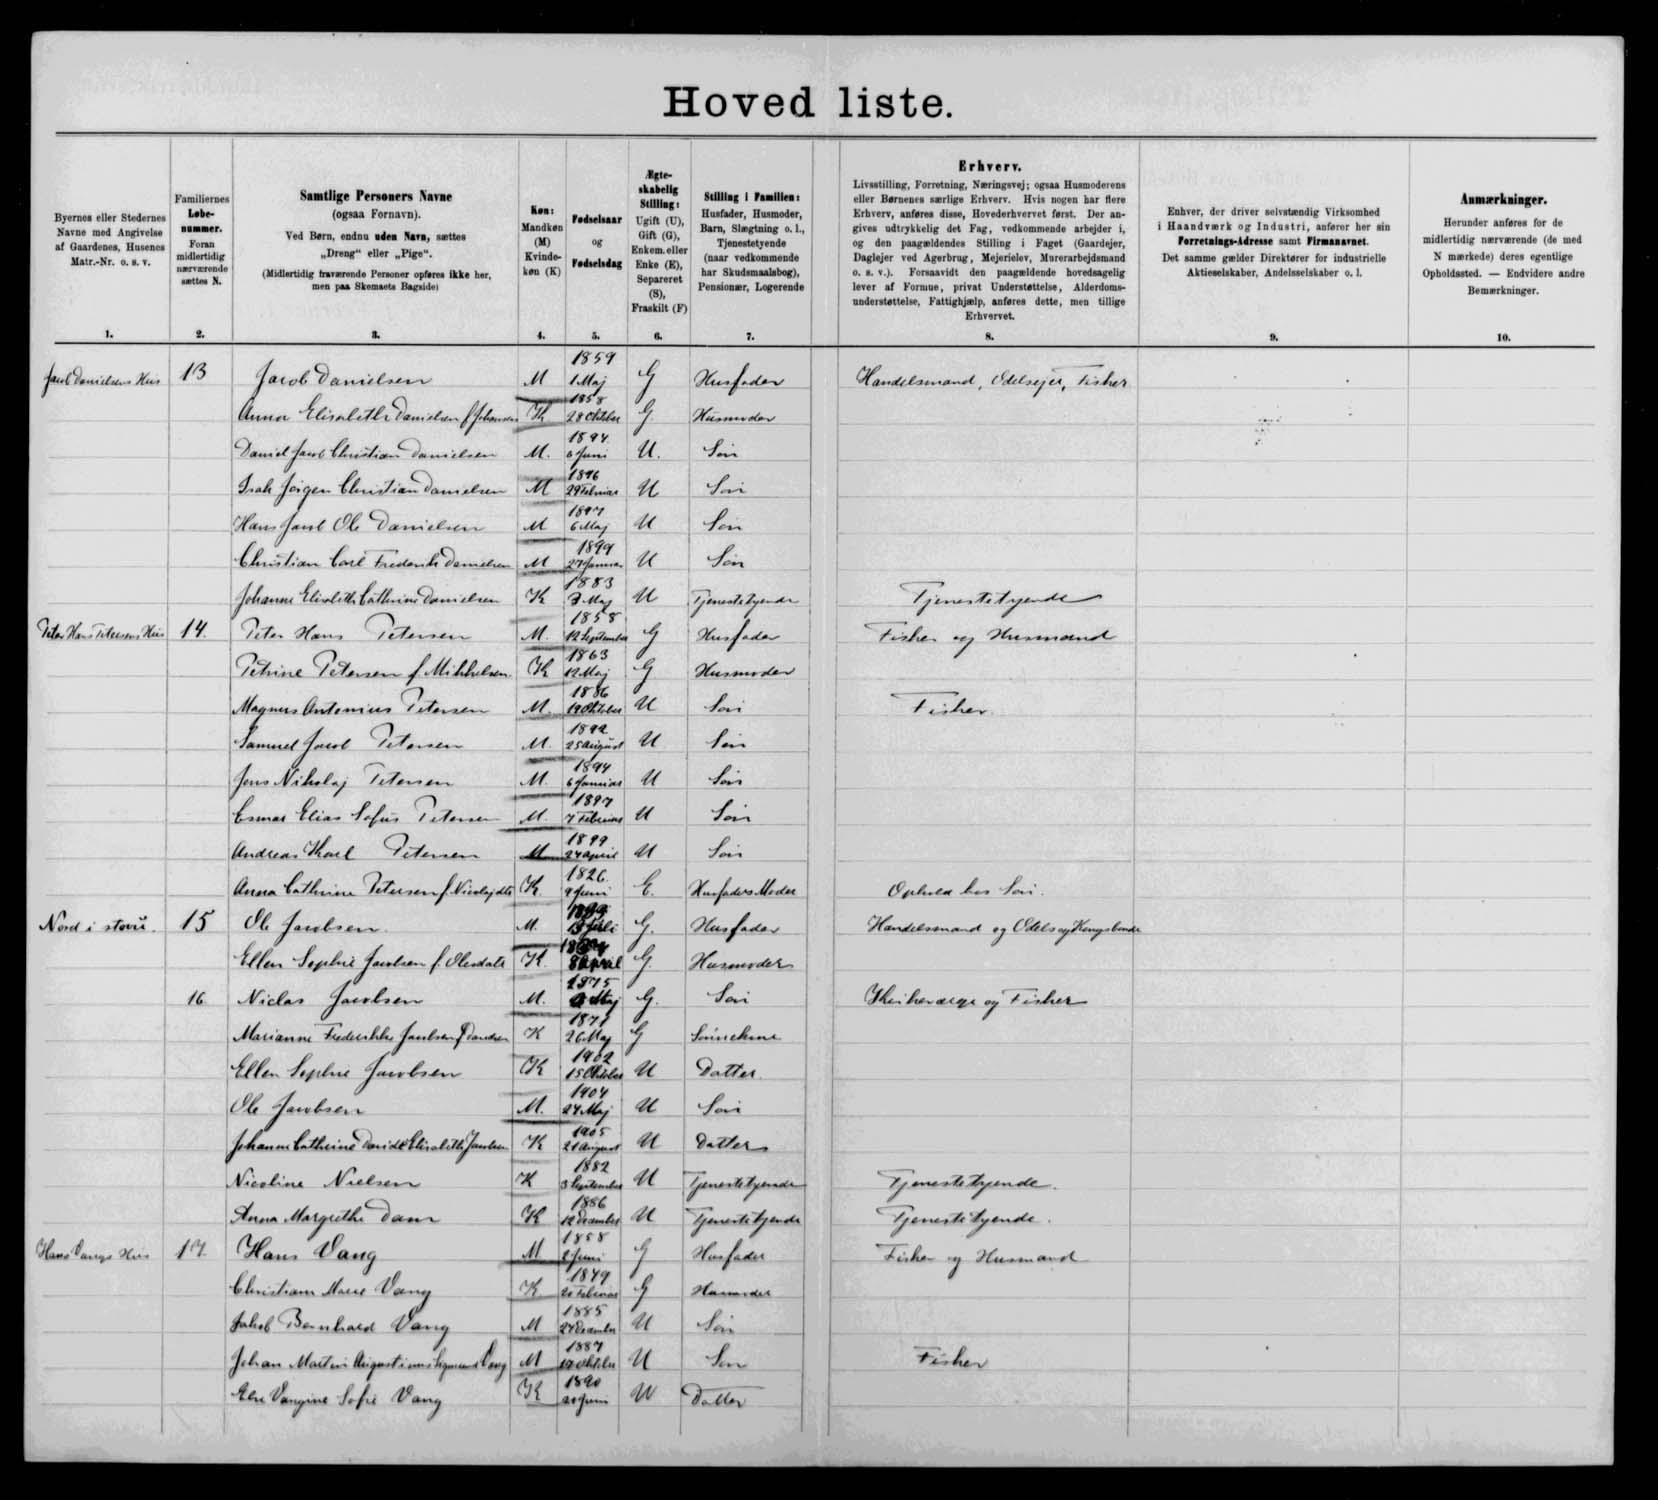 Hoved liste.
Byernes eller Stedernes
Navne med Angivelse
af Gaardenes, Husenes
Matr.-Nr. o. s. v.
1.
Familiernes
Løbe-
nummer.
Foran
midlertidig
nærværende
sættes N.
2.
Samtlige Personers Navne
(ogsaa Fornavn).
Ved Børn, endnu uden Navn, sættes
„Dreng“ eller „Pige“.
(Midlertidig fraværende Personer opføres ikke her,
men paa Skemaets Bagside)
3.
Køn:
Mandkøn
(M)
Kvinde-
køn (K)
4.
Fødselsaar
og
Fødselsdag
5.
Ægte-
skabelig
Stilling:
Ugift (U),
Gift (G),
Enkem. eller
Enke (E),
Separeret
(S),
Fraskilt (F)
6.
Stilling i Familien:
Husfader, Husmoder,
Barn, Slægtning o. l.,
Tjenestetyende
(naar vedkommende
har Skudsmaalsbog),
Pensionær, Logerende
7.
Erhverv.
Livsstilling, Forretning, Næringsvej; ogsaa Husmoderens
eller Børnenes særlige Erhverv. Hvis nogen har flere
Erhverv, anføres disse, Hovederhvervet først. Der an-
gives udtrykkelig det Fag, vedkommende arbejder i,
og den paagældendes Stilling i Faget (Gaardejer,
Daglejer ved Agerbrug, Mejerielev, Murerarbejdsmand
o. s. v.). Forsaavidt den paagældende hovedsagelig
lever af Formue, privat Understøttelse, Alderdoms-
understøttelse, Fattighjælp, anføres dette, men tillige
Erhvervet.
8.
Enhver, der driver selvstændig Virksomhed
i Haandværk og Industri, anfører her sin
Forretnings-Adresse samt Firmanavnet.
Det samme gælder Direktører for industrielle
Aktieselskaber, Andelsselskaber o. l.
9.
Anmærkninger.
Herunder anføres for de
midlertidig nærværende (de med
N mærkede) deres egentlige
Opholdssted. — Endvidere andre
Bemærkninger.
10.
Jacob Danielsens Hus 13 Jacob Danielsen M 1859 1 Maj G Husfader Handelsmand, Odelsejer, Fisker
Anna Elisabeth Danielsen f Johansen K 1858 28 Oktober G. Husmoder
Daniel Jacob Christian Danielsen M. 1894. 6 Juni U. Søn
Isak Jørgen Christian Danielsen M 1896 29 Februar U Søn
Hans Jacob Ole Danielsen M 1897 6 Maj U Søn
Christian Carl Frederik Danielsen M 1899 27 Januar U Søn
Johanne Elisabeth Cathrine Danielsen K 1883 3 Maj U Tjenestetyende Tjenestetyende
Peter Hans Petersens Hus 14. Peter Hans Petersen M. 1858 12 September G Husfader Fisker og Husmand
Petrine Petersen f. Mikkelsen. K 1863 12 Maj G Husmoder
Magnus Antonius Petersen M. 1886 19 Oktober U Søn Fisker.
Samuel Jacob Petersen M. 1892 25 August U Søn
Jens Nikolaj Petersen M. 1894 6 Januar U Søn
Esmar Elias Sofus Petersen M. 1897 7 Februar U Søn
Andreas Karl Petersen M 1899 24 April U Søn
Anna Cathrine Petersen f. Nicolajdtr K. 1826. 9 Juni E. Husfaders Moder Ophold hos Søn.
Nord i stovu. 15 Ole Jacobsen. M. Juli G. Husfader Handelsmand og Odels og Kongsbonde
Ellen Sophie Jacobsen f. Olesdatr K. 8 April G. Husmoder
16. Niclas Jacobsen M. 1875 Maj G. Søn Kirkeværge og Fisker
Marianne Frederikke Jacobsen f Danielsen K 1871 26 Maj G Sønnekone
Ellen Sophie Jacobsen K 1902 15 Oktober U Datter.
Ole Jacobsen M. 1904 24 Maj U Søn
Johanne Cathrine Davide Elisabeth Jacobsen K 1905 21 August U Datter
Nicoline Nielsen K 1882 3 September U Tjenestetyende Tjenestetyende.
Anna Margrethe Dam K 1886 12 December U Tjenestetyende Tjenestetyende.
Hans Vangs Hus 17. Hans Vang M 1858 2 Juni G Husfader Fisker og Husmand
Christiane Marie Vang K 1849 Februar G Husmoder
Jakob Bernhard Vang M 1885 24 December U Søn
Johan Martin Augustinus Sigmund Vang M 1887 17 Oktober U Søn Fisker
Else Vangine Sofie Vang K 1890 Juni U Datter